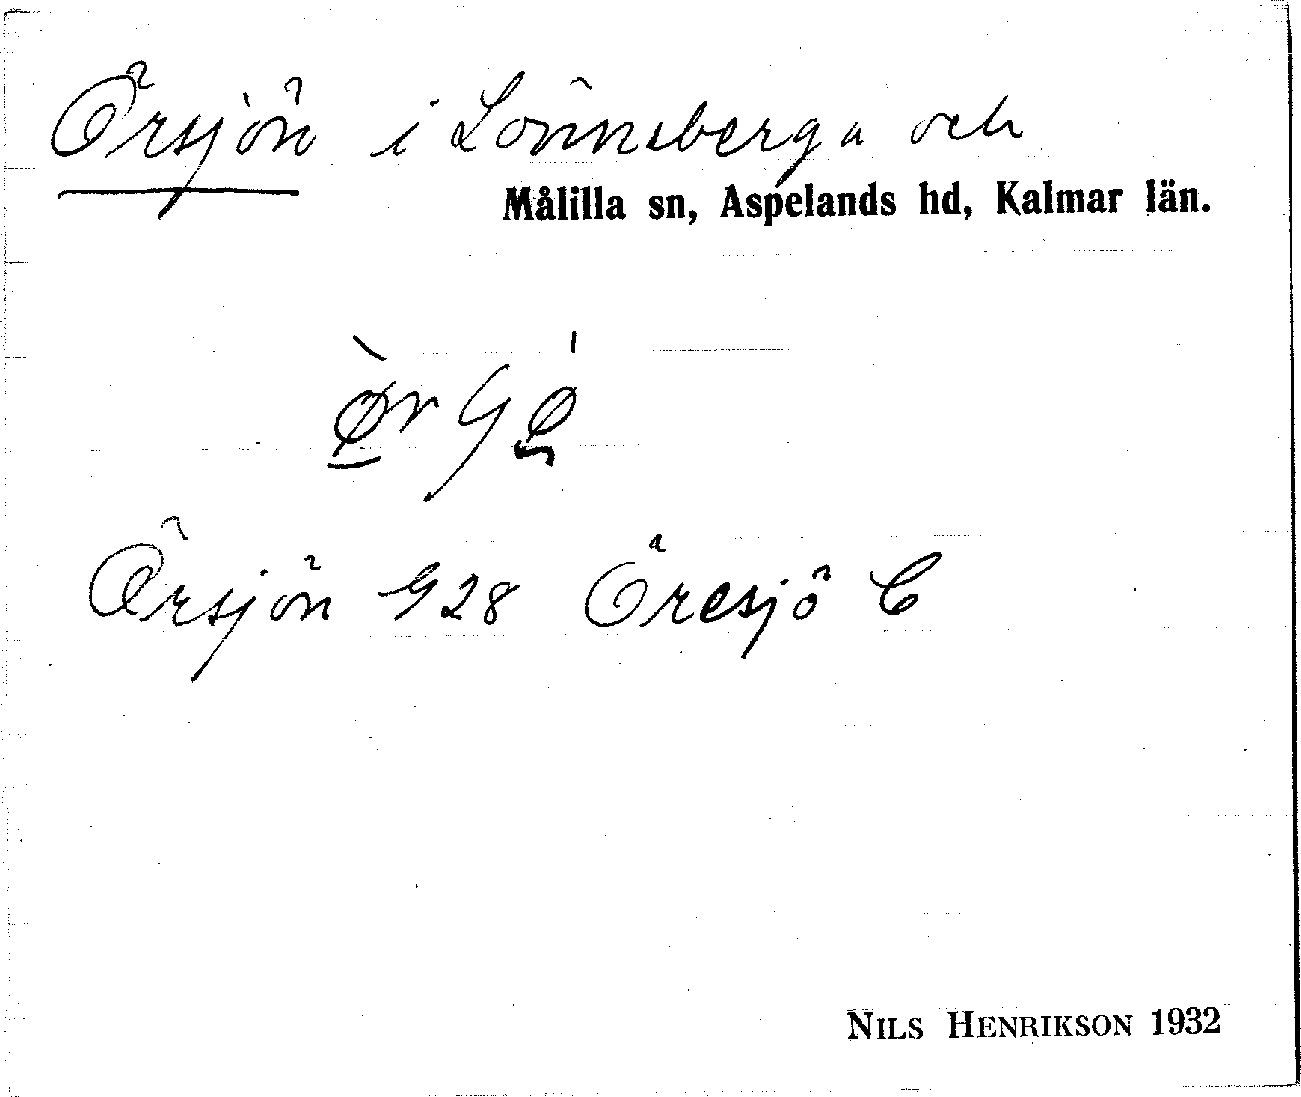 Örsjön i Lönneberga och
Målilla sn, Aspelands hd, Kalmar län.
Örsjön G28 Öresjö C
NILS HENRIKSON 1932